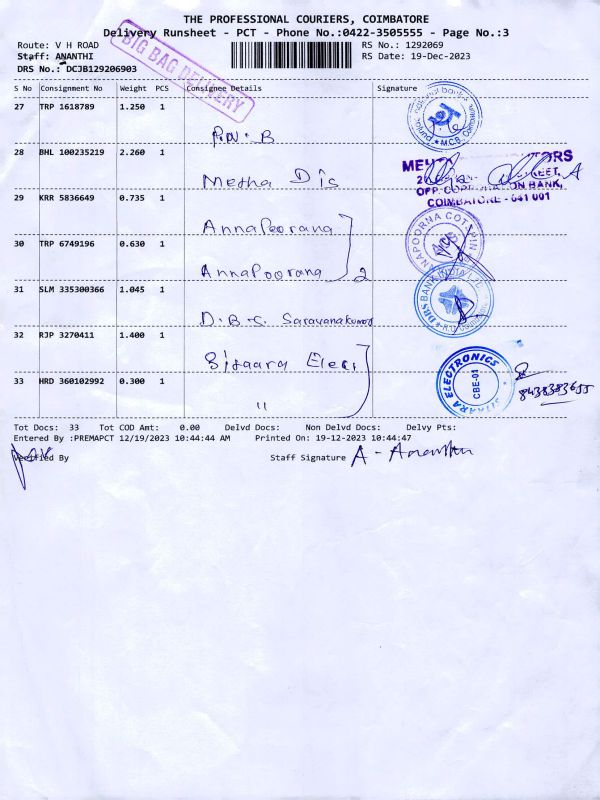 THE PROFESSIONAL COURIERS, COIMBATORE
Delivery Runsheet - PCT - Phone No.:0422-3505555 - Page No.:3
Route: V H ROAD
RS No.: 1292069
Staff: ANANTHI
RS Date: 19-Dec-2023
DRS No.: DCJB129206903
BIG BAG DELIVERY
S No Consignment No Weight PCS Consignee Details Signature
27 TRP 1618789 1.250 1
P.N.B
28 BHL 100235219 2.260 1
Metha Dis
OPP. CORPORATION BANK,
COIMBATORE - 641 001
29 KRR 5836649 0.735 1
AnnaPoorana
30 TRP 6749196 0.630 1
AnnaPoorana 2
31 SLM 335300366 1.045 1
D.B.S. Saravanakumar
32 RJP 3270411 1.400 1
Sitaara Elec
SITAARA ELECTRONICS
CBE-01
8438383655
33 HRD 360102992 0.300 1
"
Tot Docs: 33 Tot COD Amt: 0.00 Delvd Docs: Non Delvd Docs: Delvy Pts:
Entered By :PREMAPCT 12/19/2023 10:44:44 AM Printed On: 19-12-2023 10:44:47
Verified By Staff Signature A - Ananthi